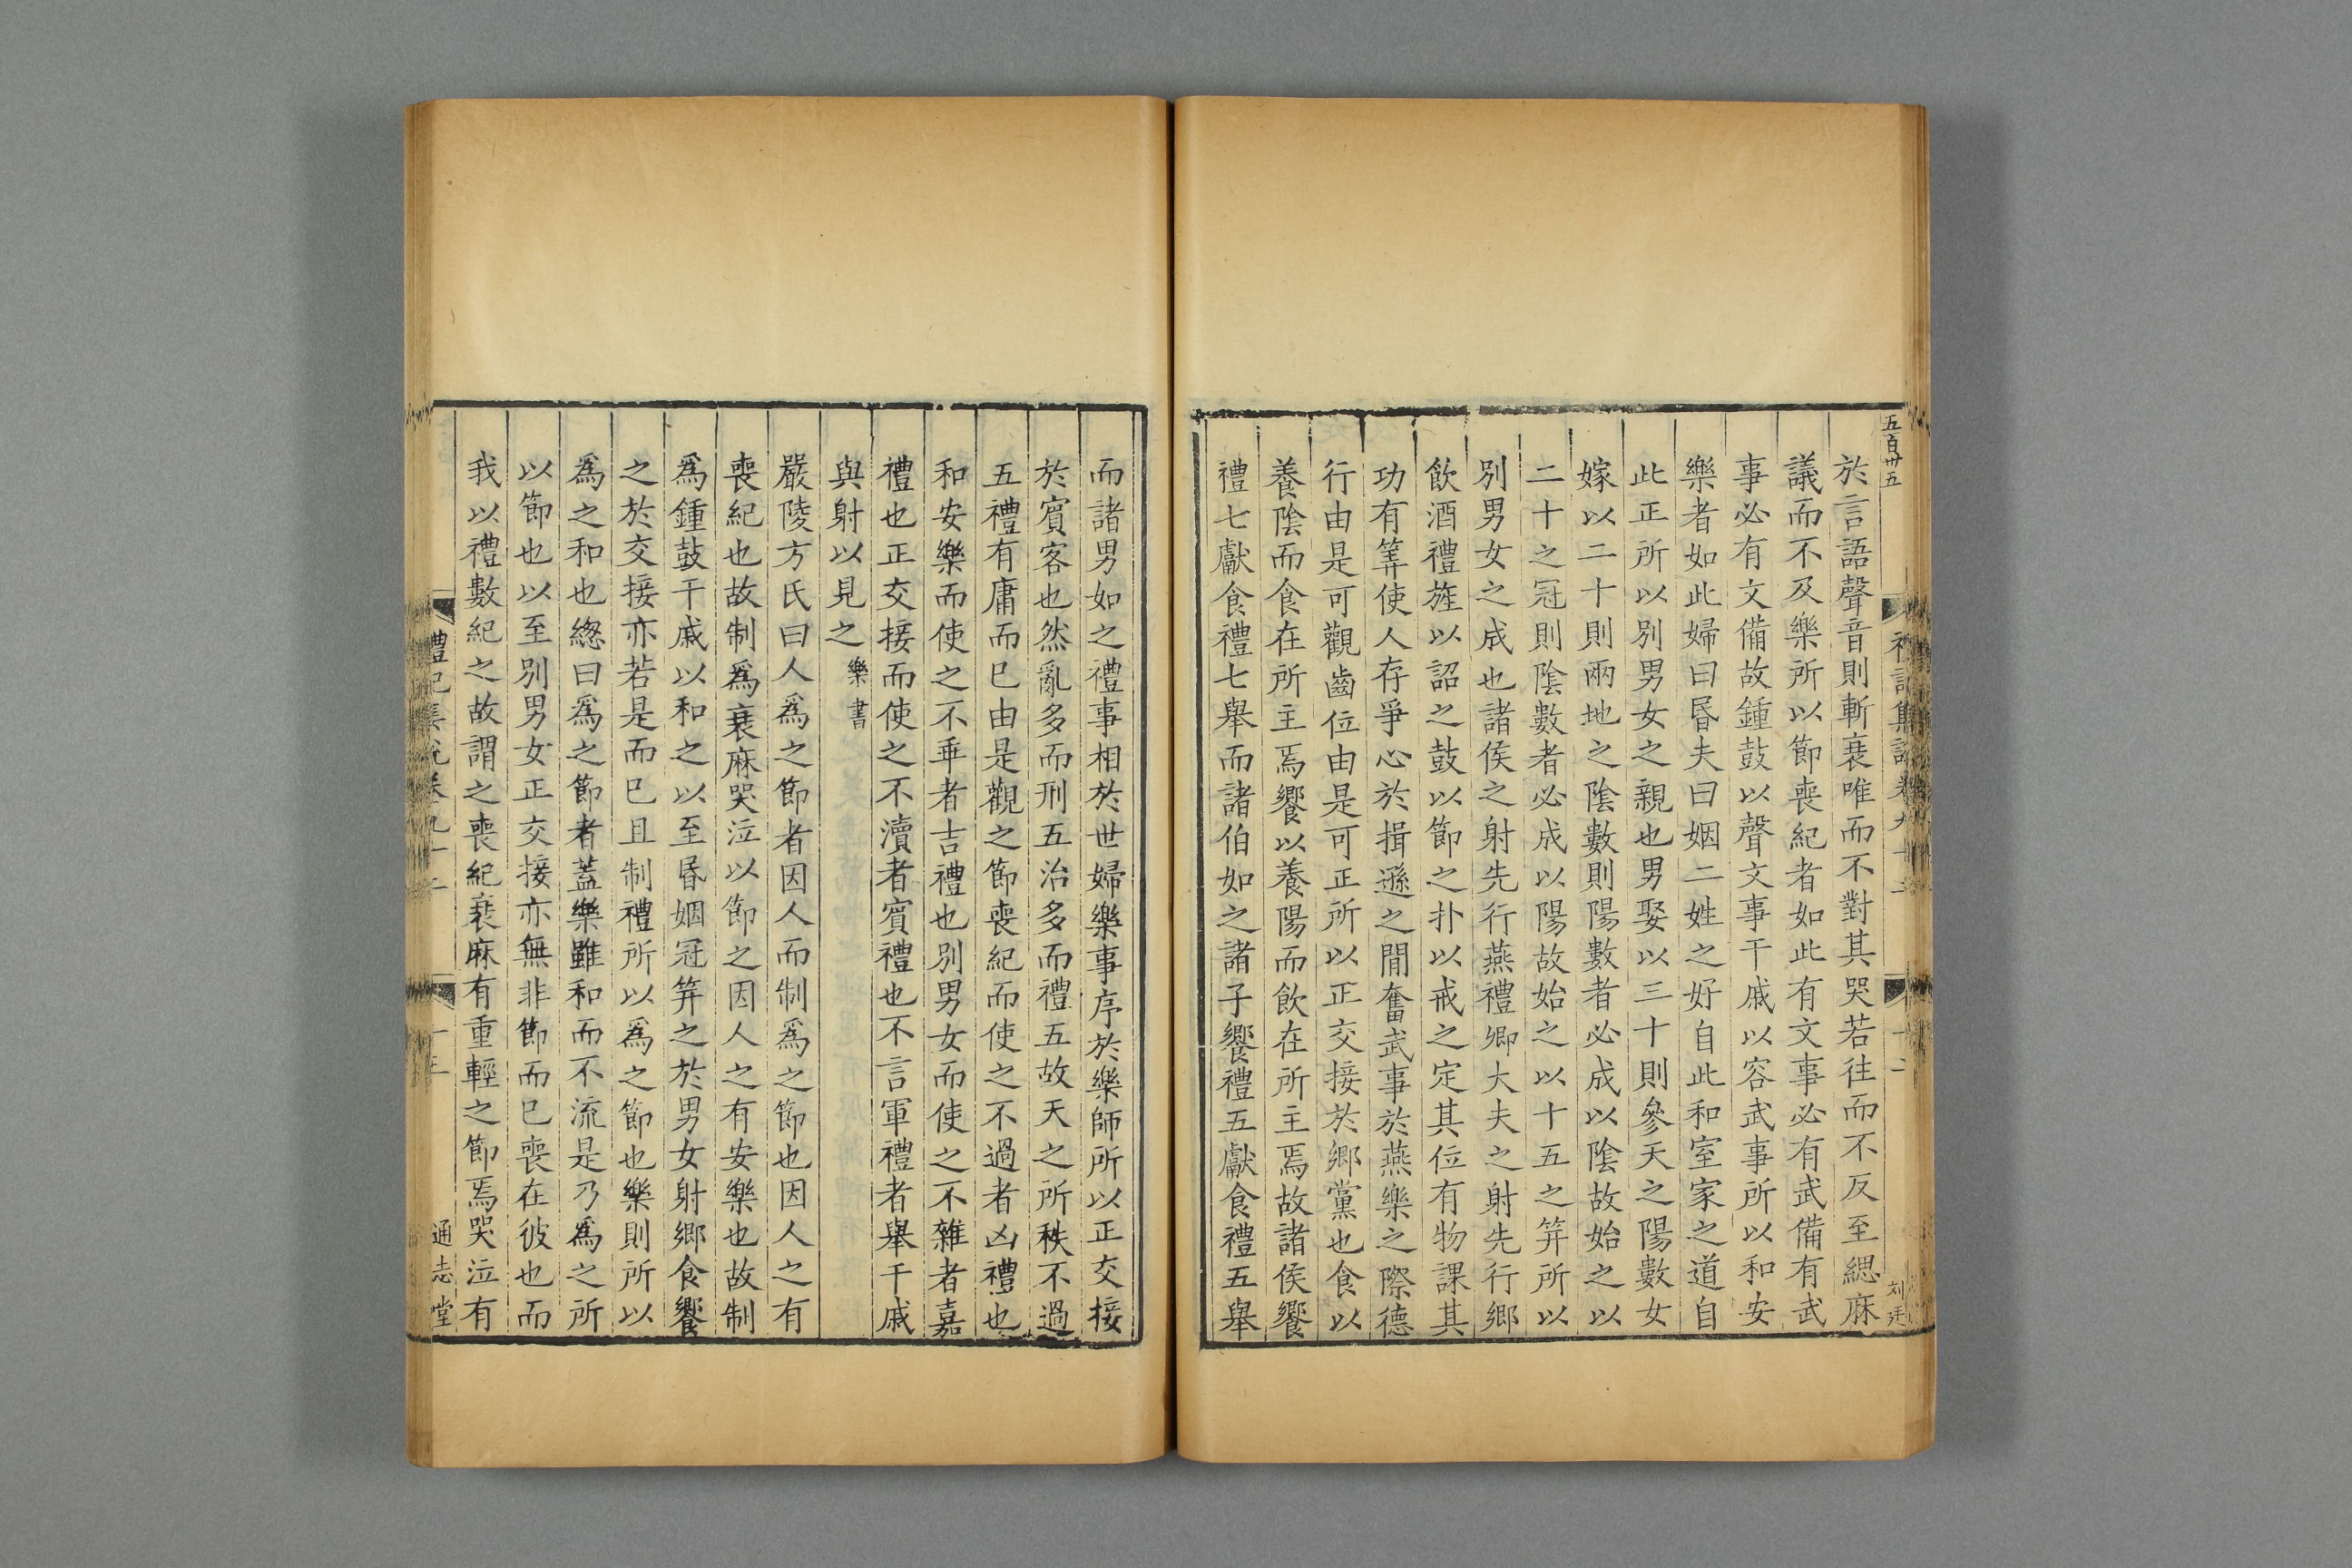 五百卅五
於言語聲音則斬衰唯而不對其哭若往而不反至緦麻
議而不及樂所以節喪紀者如此有文事必有武備有武
事必有文備故鍾鼓以聲文事干戚以容武事所以和安
樂者如此婦曰昬夫曰姻二姓之好自此和室家之道自
此正所以別男女之親也男娶以三十則參天之陽數女
嫁以二十則兩地之陰數則陽數者必成以陰故始之以
二十之冠則陰數者必成以陽故始之以十五之笄所以
別男女之成也諸侯之射先行燕禮卿大夫之射先行鄉
飲酒禮旌以詔之鼓以節之扑以戒之定其位有物課其
功有筭使人存爭心於揖遜之閒奮武事於燕樂之際德
行由是可觀齒位由是可正所以正交接於鄉黨也食以
養陰而食在所主焉饗以養陽而飲在所主焉故諸侯饗
禮七獻食禮七舉而諸伯如之諸子饗禮五獻食禮五舉
而諸男如之禮事相於世婦樂事序於樂師所以正交接
於賓客也然亂多而刑五治多而禮五故天之所秩不過
五禮有庸而巳由是觀之節喪紀而使之不過者凶禮也
和安樂而使之不乖者吉禮也別男女而使之不雜者嘉
禮也正交接而使之不瀆者賓禮也不言軍禮者舉干戚
與射以見之樂書
嚴陵方氏曰人爲之節者因人而制爲之節也因人之有
喪紀也故制爲衰麻哭泣以節之因人之有安樂也故制
爲鍾鼓干戚以和之以至昬姻冠笄之於男女射鄉食饗
之於交接亦若是而巳且制禮所以爲之節也樂則所以
爲之和也緫曰爲之節者蓋樂雖和而不流是乃爲之所
以節也以至別男女正交接亦無非節而巳喪在彼也而
我以禮數紀之故謂之喪紀衰麻有重輕之節焉哭泣有
禮記集說卷九十二
通志堂